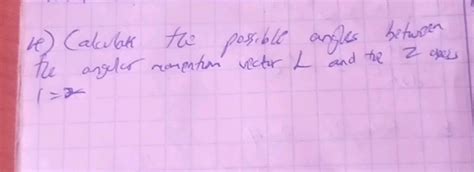 1e) Calculate the possible angles between
the angular momentum vector L and the Z axis
l = 2